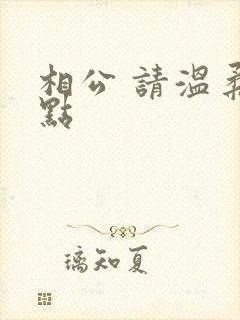 相公 請溫柔
點
璃知夏